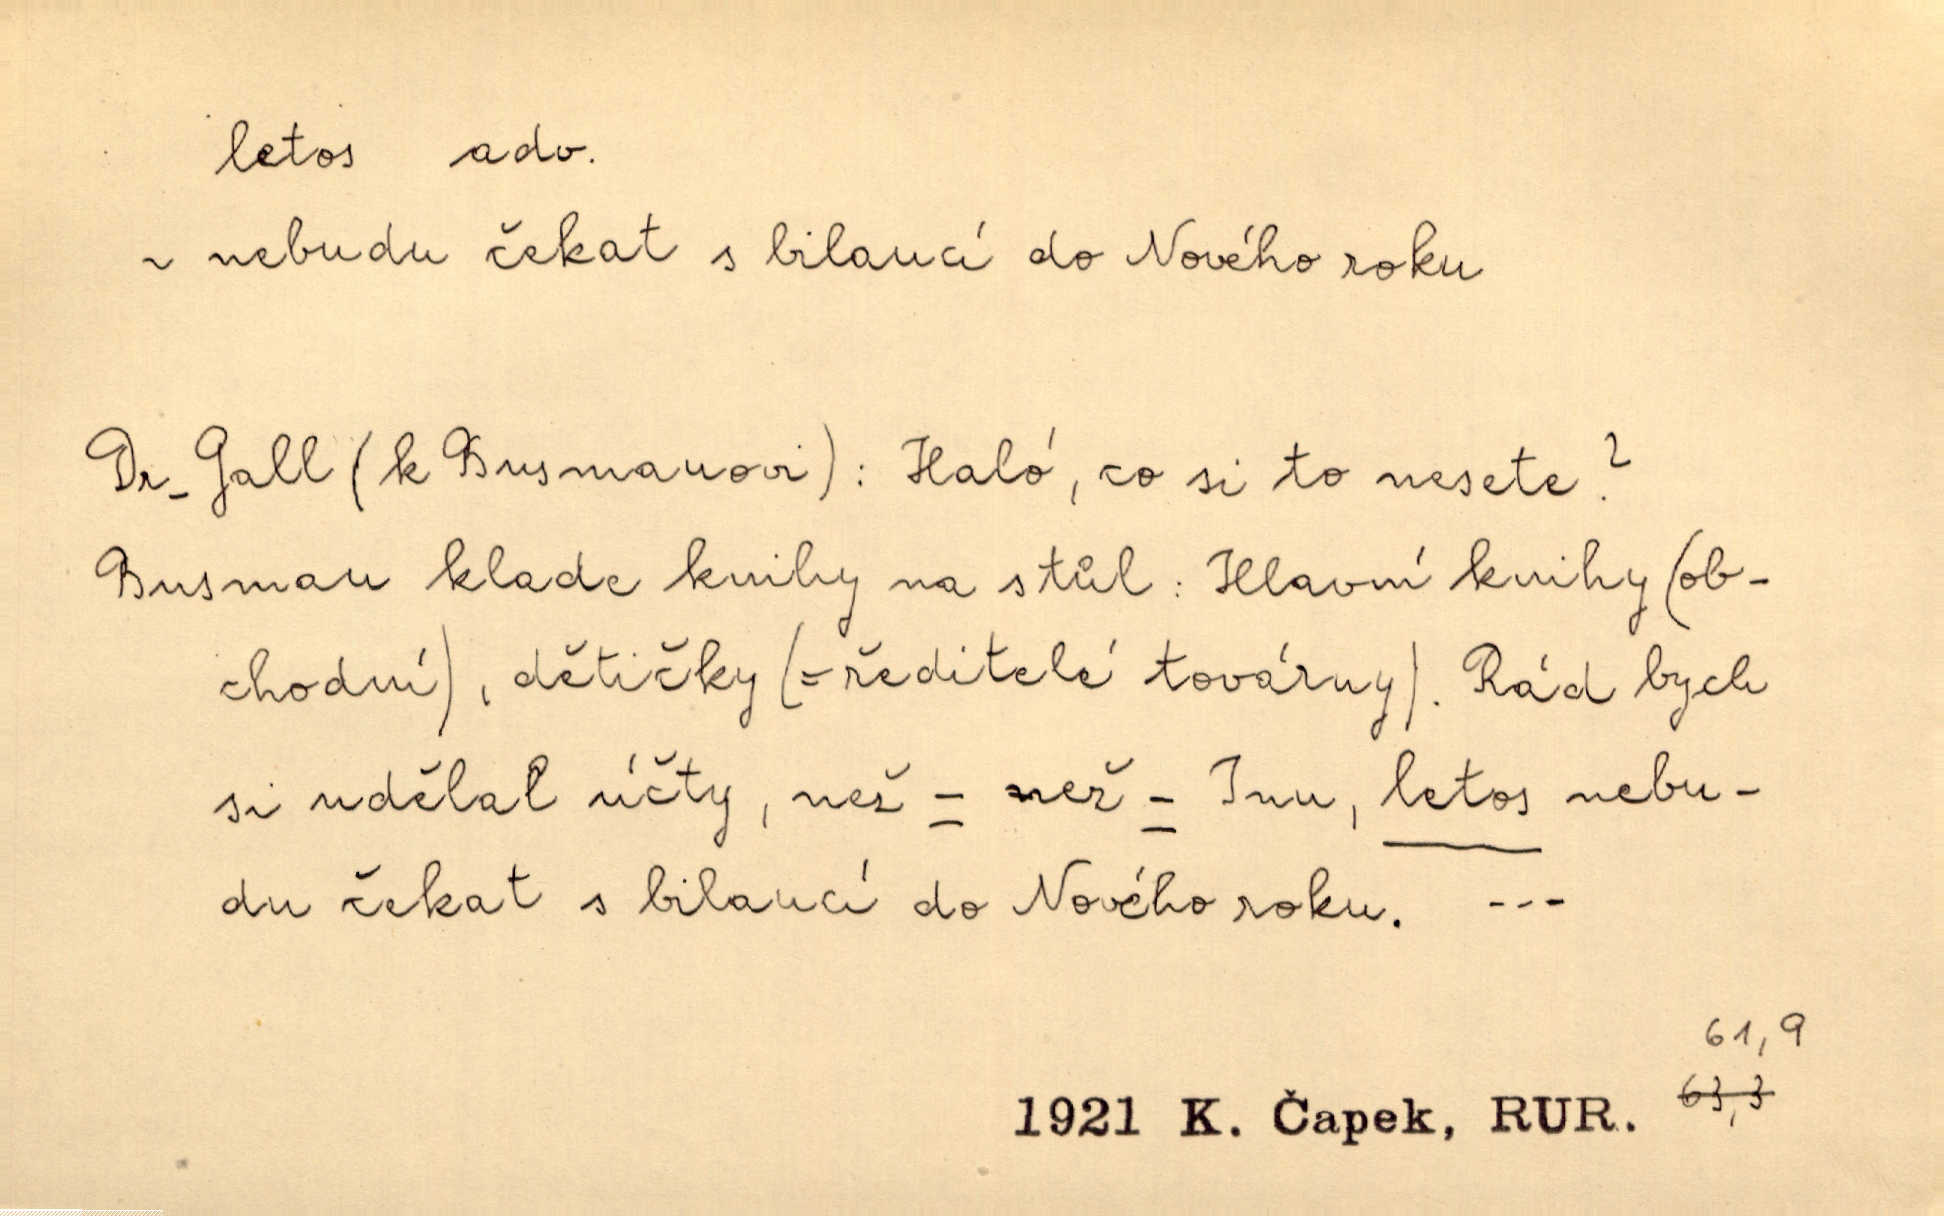 letos adv.
~ nebudu čekat s bilancí do Nového roku
Dr. Gall (k Busmanovi): Haló, co si to nesete?
Busman klade knihy na stůl: Hlavní knihy (ob-
chodní), dětičky (= ředitelé továrny). Rád bych
si udělal účty, než – než – Inu, letos nebu-
du čekat s bilancí do Nového roku. ---
61,9
63,3
1921 K. Čapek, RUR.